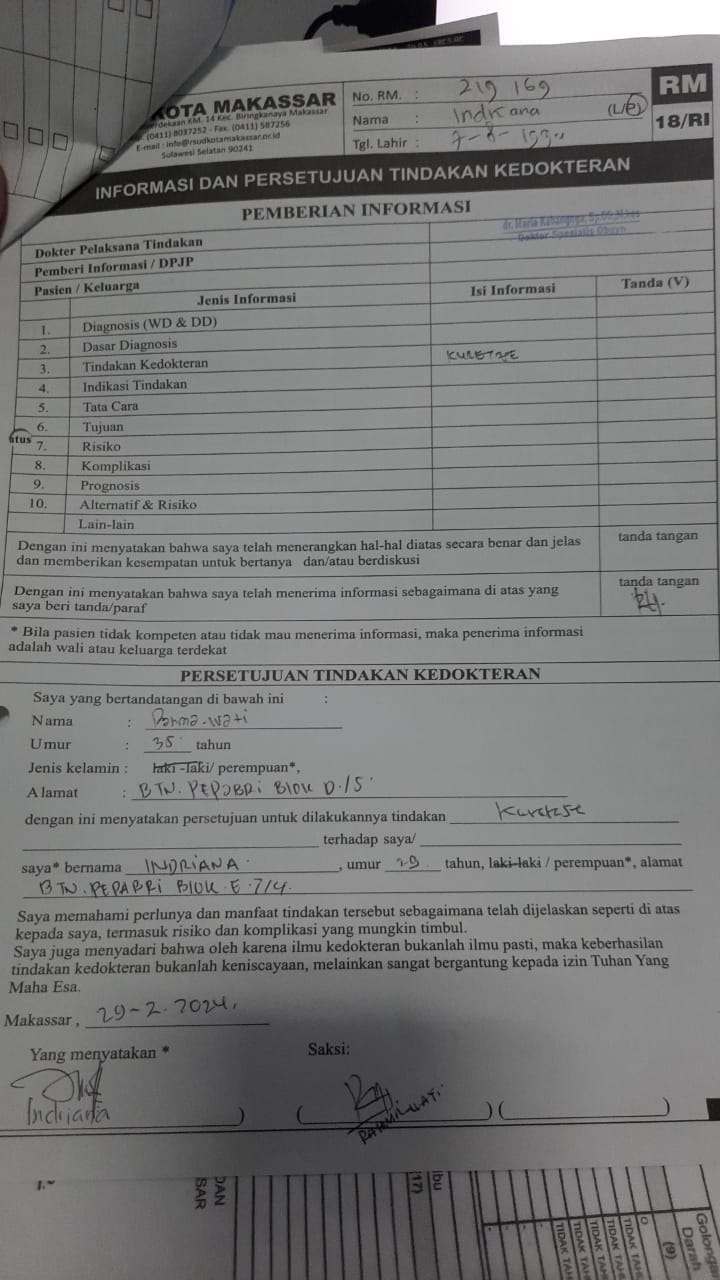 KOTA MAKASSAR
KM. 14 Kec. Biringkanaya Makassar
(0411) 8037252 - Fax. (0411) 587256
E-mail : info@rsudkotamakassar.or.id
Sulawesi Selatan 90241
No. RM. : 219 169
Nama : Indriana (L/P)
Tgl. Lahir :
RM
18/RI
INFORMASI DAN PERSETUJUAN TINDAKAN KEDOKTERAN
PEMBERIAN INFORMASI
Dokter Pelaksana Tindakan
dr. Maria
Dokter Spesialis Obgyn
Pemberi Informasi / DPJP
Pasien / Keluarga
Jenis Informasi Isi Informasi Tanda (V)
1. Diagnosis (WD & DD)
2. Dasar Diagnosis
3. Tindakan Kedokteran KURETASE
4. Indikasi Tindakan
5. Tata Cara
6. Tujuan
atus
7. Risiko
8. Komplikasi
9. Prognosis
10. Alternatif & Risiko
Lain-lain
Dengan ini menyatakan bahwa saya telah menerangkan hal-hal diatas secara benar dan jelas
dan memberikan kesempatan untuk bertanya dan/atau berdiskusi
tanda tangan
Dengan ini menyatakan bahwa saya telah menerima informasi sebagaimana di atas yang
saya beri tanda/paraf
tanda tangan
* Bila pasien tidak kompeten atau tidak mau menerima informasi, maka penerima informasi
adalah wali atau keluarga terdekat
PERSETUJUAN TINDAKAN KEDOKTERAN
Saya yang bertandatangan di bawah ini :
Nama :
Umur : 35 tahun
Jenis kelamin : laki-laki/ perempuan*,
Alamat : BTN. PEPABRI BLOK D./5
dengan ini menyatakan persetujuan untuk dilakukannya tindakan Kuretase
terhadap saya/
saya* bernama INDRIANA , umur 29 tahun, laki-laki / perempuan*, alamat
BTN. PEPABRI BLOK. E. 7/4.
Saya memahami perlunya dan manfaat tindakan tersebut sebagaimana telah dijelaskan seperti di atas
kepada saya, termasuk risiko dan komplikasi yang mungkin timbul.
Saya juga menyadari bahwa oleh karena ilmu kedokteran bukanlah ilmu pasti, maka keberhasilan
tindakan kedokteran bukanlah keniscayaan, melainkan sangat bergantung kepada izin Tuhan Yang
Maha Esa.
Makassar , 29-2.2024.
Yang menyatakan * Saksi:
Indriana ) ( ) ( )
DAN
SAR
ibu
(17)
TIDAK
TIDAK TA
TIDAK TA
TIDAK TAH
TIDAK TAH
O
(9)
Golongan
Darah